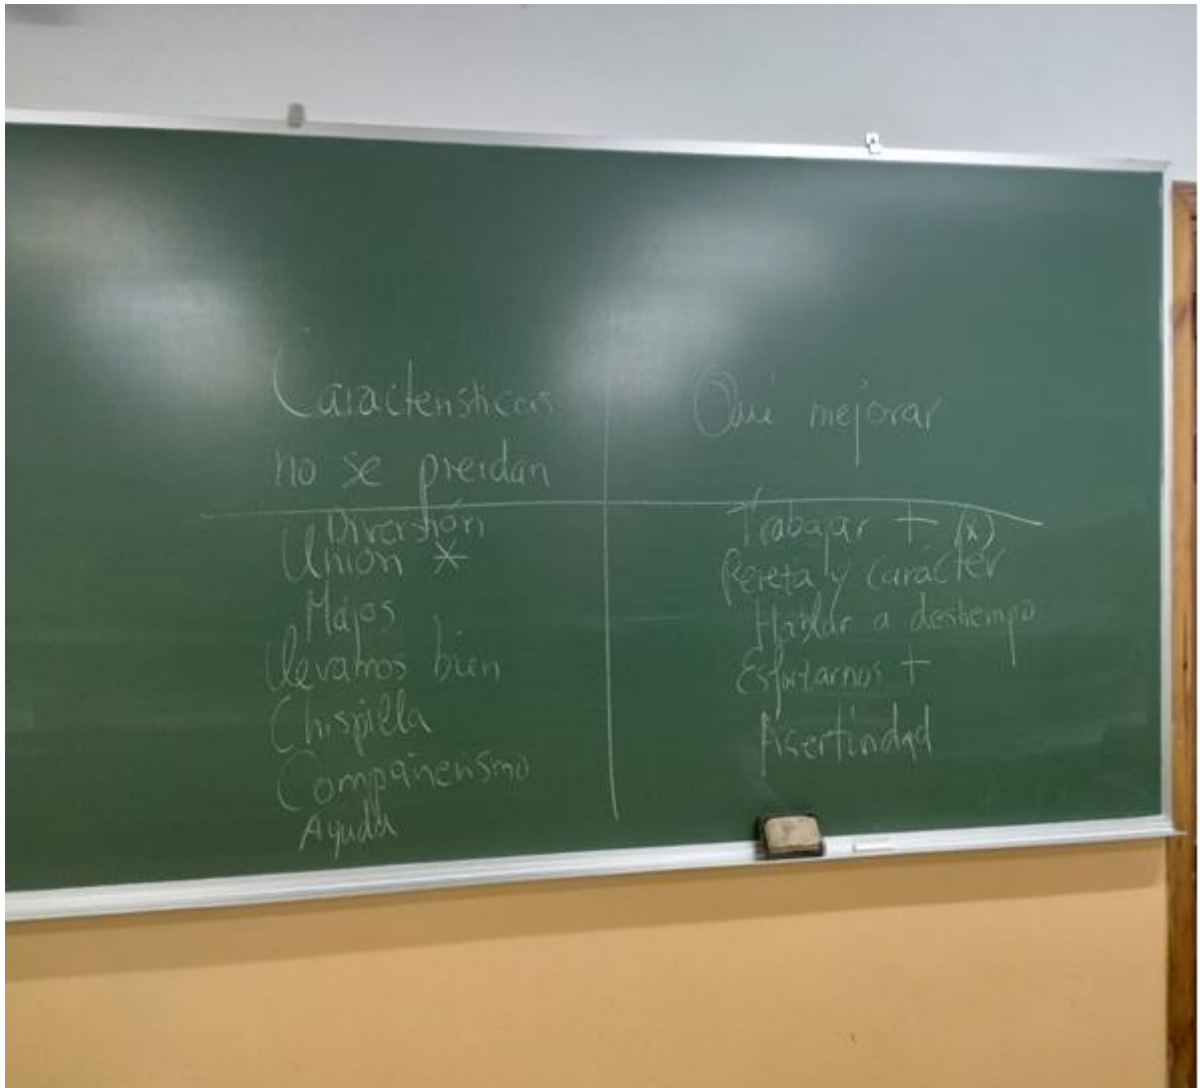 Características
no se preirdan
Diversión
Unión *
Majos
llevamos bien
Chispilla
Compañerismo
Ayuda
Qué mejorar
Trabajar + (x)
y carácter
Hablar a destiempo
Esforzarnos +
Asertividad